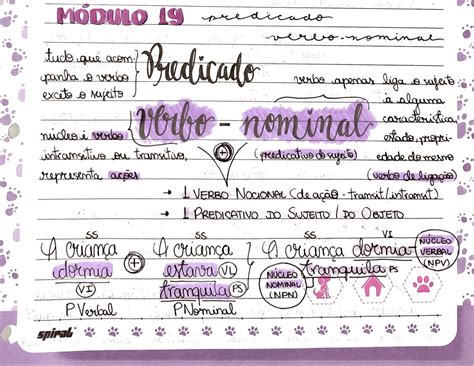 MÓDULO 19 predicado
verbo-nominal
tudo que acom-
panha o verbo
exceto o sujeito
Predicado
verbo apenas liga o sujeito
a alguma
característica
estado, propri-
edade do mesmo
(verbo de ligação)
verbo-nominal
núcleo é verbo
intransitivo ou transitivo,
representa ações
(predicativo do sujeito)
→ 1 VERBO NOCIONAL (de ação - transit/intransit)
→ 1 PREDICATIVO DO SUJEITO / DO OBJETO
SS
A criança
dormia
VI
P Verbal
+
SS
A criança
estava VL
tranquila PS
P Nominal
SS VI
A criança dormia
tranquila PS
NÚCLEO
VERBAL
(NPV)
NÚCLEO
NOMINAL
(NPN)
spiral